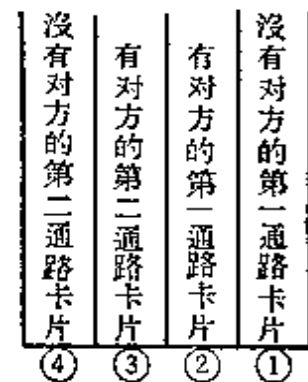 沒有对方的第一通路卡片
①
有对方的第一通路卡片
②
有对方的第二通路卡片
③
沒有对方的第二通路卡片
④